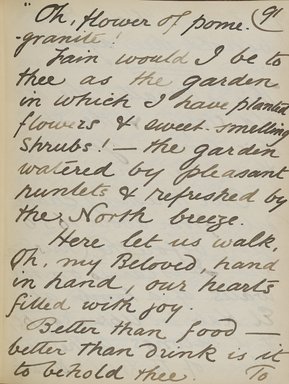 "Oh, flower of pome- (91
granite!
Fain would I be to
thee as the garden
in which I have planted
flowers & sweet-smelling
Shrubs! — the garden
watered by pleasant
runlets & refreshed by
the North breeze.
Here let us walk,
Oh, my Beloved, hand
in hand, our hearts
filled with joy.
Better than food —
better than drink is it
to behold thee. To